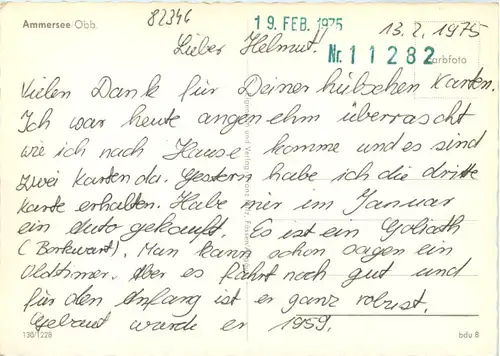 Ammersee Obb.
82346
19. FEB. 1975
13.2.1975
Lieber Helmut!
Nr. 11282
Farbfoto
Vielen Dank für Deiner hübschen Karten.
Ich war heute angenehm überrascht
wie ich nach Hause komme und es sind
zwei Karten da. Gestern habe ich die dritte
Karte erhalten. Habe mir im Januar
ein Auto gekauft. Es ist ein Goliath
(Borkwart). Man kann schon sagen ein
Oldtimer. Aber es fährt noch gut und
für den Anfang ist er ganz robust.
Gebaut wurde er 1959.
130/1228
bdu 8